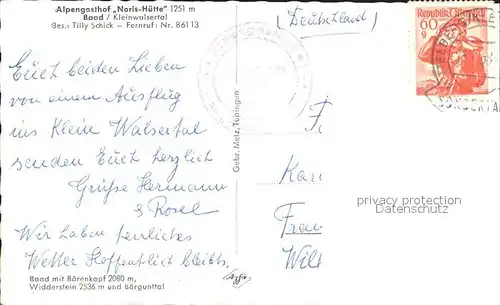 Alpengasthof „Noris-Hütte" 1251 m
Baad / Kleinwalsertal
Bes.: Tilly Schick – Fernruf: Nr. 86113
Euch beiden Lieben
von einem Ausflug
ins Kleine Walsertal
senden Euch herzlich
Grüße Hermann
& Rosel
Wir haben herrliches
Wetter Hoffentlich bleibts.
Baad mit Bärenkopf 2080 m,
Widderstein 2536 m und Bärgunttal
Gebr. Metz, Tübingen
Agfa
(Deutschland)
Republik Österreich
60
g
SONDERTA
F
Kar
Frau
Wil
privacy protection
Datenschutz